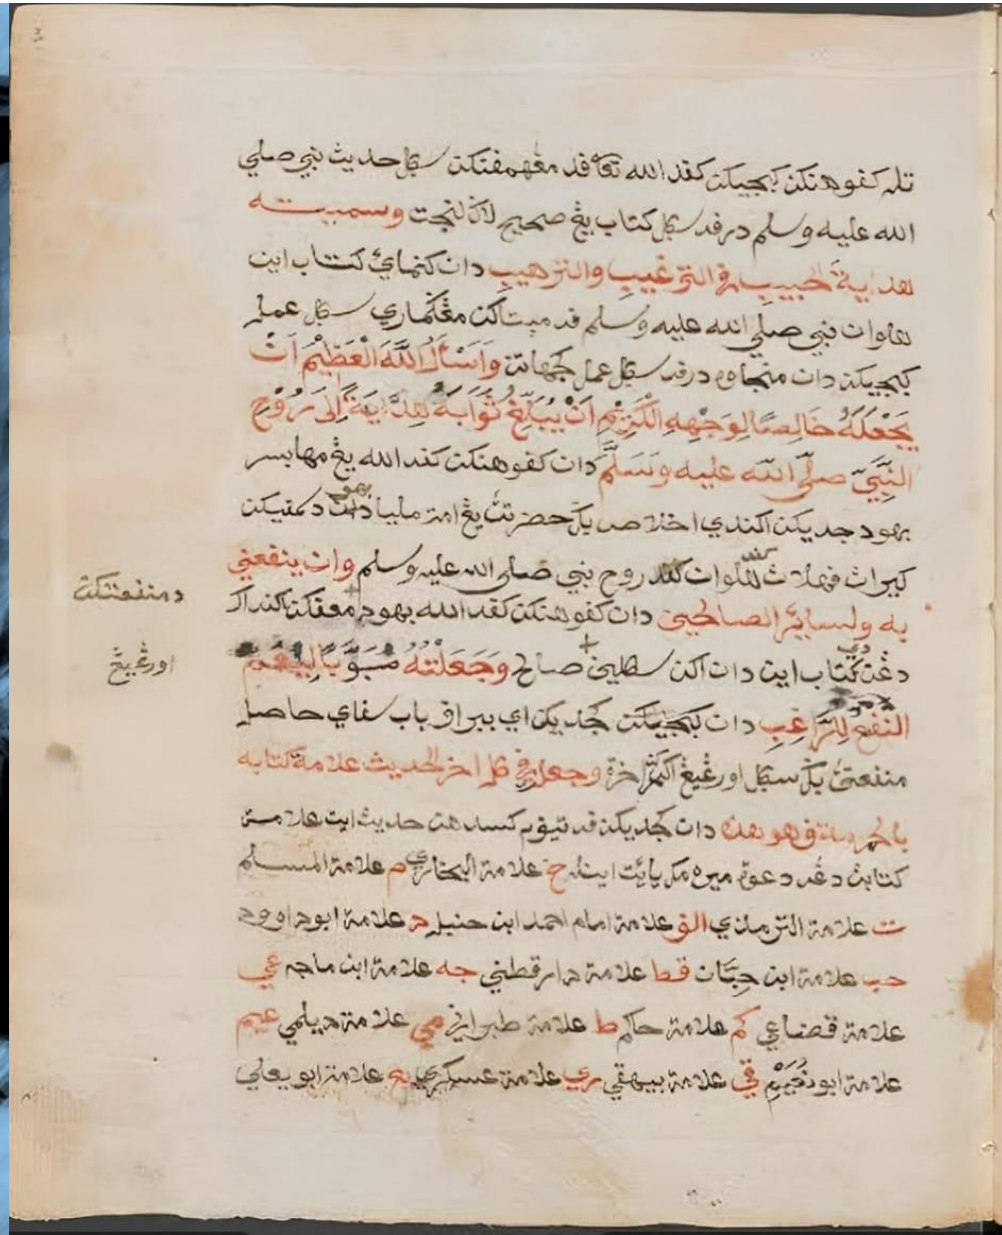 تله كفوهنكن كبجيكن كفد الله تعالى فد مڠهمفنكن سݢل حديث نبي صلى
الله عليه وسلم درفد سݢل كتاب يڠ صحيح لاݢ لنجت وسميته
هداية الحبيب في الترغيب والترهيب دان كنماءي كتاب اين
هلوان نبي صلى الله عليه وسلم فد مپتاكن مڠݢماري سݢل عمل
كبجيكن دان منجاوه درفد سݢل عمل كجهاتن وَاَسْأَلُ اللّٰهَ الْعَظِيْمَ اَنْ
يَجْعَلَهُ خَالِصًا لِوَجْهِهِ الْكَرِيْمِ اَنْ يُبَلِّغَ ثَوَابَهُ هِدَايَةً اِلَى رُوْحِ
النَّبِيِّ صلّى اللّه عليه وَسَلَّمَ دان كفوهنكن كفد الله يڠ مها بسر
بهو دجديكن اكندي اخلاص بݢي حضرتڽ يڠ امت مليا دان بهو دسمفيكن
روح نبي صلى الله عليه وسلم وان ينفعني
به ولسائر الصالحين دان كفوهنكن كفد الله بهو
دڠن كتاب اين دان اكن سكلين صالح وَجَعَلْتُهُ مُبَوَّبًا لِيَعُمَّ
النَّفْعُ لِلرَّاغِبِ دان كبجيكن كجديكن اي ببراف باب سفاي حاصل
منفعتڽ بݢي سݢل اورڠ يڠ اخرة وجعل في كل اخر الحديث علامة كتابه
بالحمرة فهو هذه دان كجديكن فد تيڤ٢ كسدهن حديث ايت علامة
كتابڽ دڠن دعوة ميره مك يائت اينله خ علامة البخاري م علامة المسلم
ت علامة الترمذي علامة امام احمد ابن حنبل د علامة ابو داوود
حب علامة ابن حِبَّان قط علامة دارقطني جه علامة ابن ماجه عي
علامة قضاعي كم علامة حاكم ط علامة طبراني مي علامة ديلمي عيم
علامة ابو نُعَيْمٍ قي علامة بيهقي ري علامة عسكري يع علامة ابو يعلي
دمنفعتكن
اورڠ يڠ